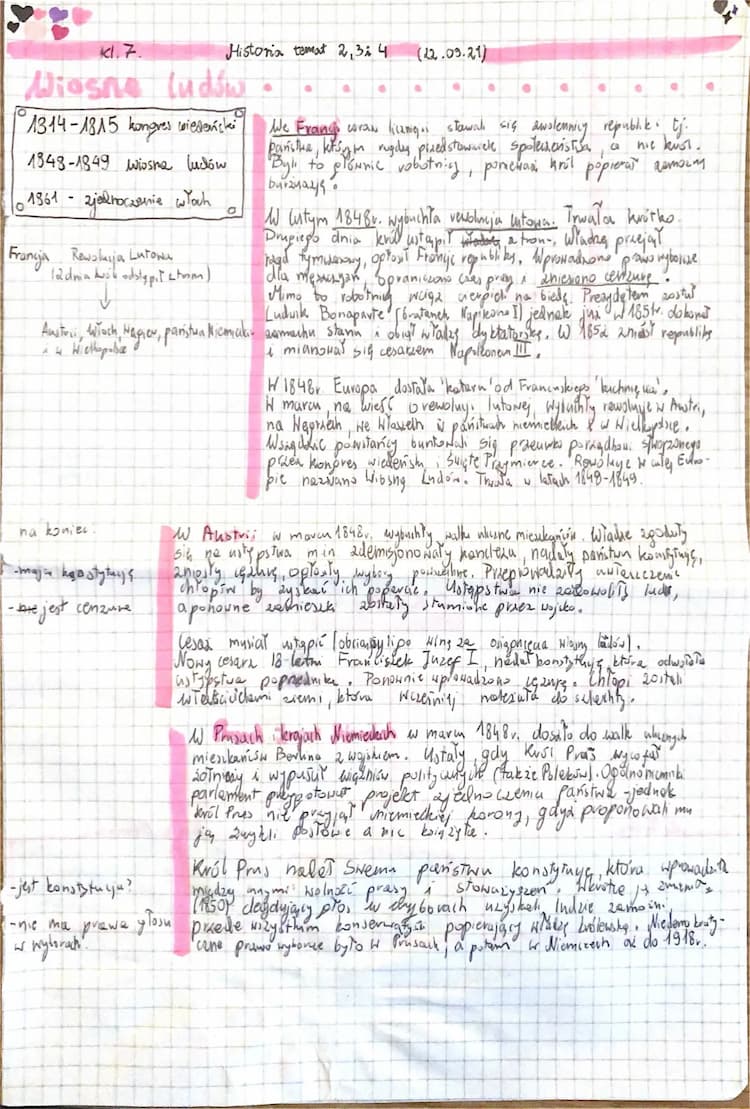 Kl. 7. Historia temat 2, 3 i 4 (22.09.21)
Wiosna ludów
1814-1815 kongres wiedeński
1848-1849 wiosna ludów
1861 - zjednoczenie włoch
Francja Rewolucja Lutowa
(2 dnia król odstąpił z tronu)
Austrii, Włoch, Węgier, państwa Niemieckie
i w Wielkopolsce
We Francji coraz liczniejsi stawali się zwolennicy republiki tj.
państwa, którym rządzą przedstawiciele społeczeństwa, a nie król.
Byli to głównie robotnicy, ponieważ król popierał zamożną
burżuazję.
W lutym 1848r. wybuchła rewolucja lutowa. Trwała krótko.
Drugiego dnia król ustąpił z tronu, Władzę przejął
rząd tymczasowy, ogłosił Francję republiką. Wprowadzono prawo wyborcze
dla mężczyzn, ograniczono czas pracy i zniesiono cenzurę.
Mimo to robotnicy wciąż cierpieli na biedę. Prezydętem został
Ludwik Bonaparte (bratanek Napoleona I) jednak już w 1851r. dokonał
zamachu stanu i objął władzę dyktatorską. W 1852 zniósł republikę
i mianował się cesarzem Napoleonem III.
W 1848r. Europa dostała 'kataru' od Francuskiego 'kichnięcia'.
W marcu, na wieść o rewolucji lutowej, wybuchły rewolucje w Austri,
na Węgrzech, we Włoszech w państwach niemieckich i w Wielkopolsce.
Wszędzie powstańcy buntowali się przeciwko porządkowi stworzonego
przez kongres wiedeński i Święte Przymierze. Rewolucje w całej Euro-
pie nazwano Wiosną Ludów. Trwała w latach 1848-1849.
na koniec:
- mają konstytucję
- jest cenzura
W Austrii w marcu 1848r. wybuchły walki uliczne mieszkańców. Władze zgodziły
się na ustępstwa m.in zdemisjonowały kanclerza, nadały państwu konstytucję,
zniosły cęzurę, ogłosiły wybory powszechne. Przeprowadziły uwłaszczenie
chłopów by zyskać ich poparcie. Ustępstwa nie zadowoliły ludu,
a ponowne zamieszki zostały stłumione przez wojsko.
Cesaż musiał ustąpić
Nowy cesarz 18-letni Franciszek Józef I, nadał konstytucję która odwołała
ustępstwa poprzednika. Ponownie wprowadzono cęzurę. Chłopi zostali
właścicielami ziemi, która wcześniej należała do szlachty.
W Prusach i krajach Niemieckich w marcu 1848r. doszło do walk ulicznych
mieszkańców Berlina z wojskiem. Ustały, gdy Król Prus wycofał
żołnierzy i wypuścił więźniów politycznych (także Polaków). Ogólnoniemiecki
parlament przygotował projekt zjednoczenia państwa - jednak
król Prus nie przyjął niemieckiej korony, gdyż proponowali mu
ją zwykli posłowie a nie książęta.
- jest konstytucja?
- nie ma prawa głosu
w wyborach.
Król Prus nadał Swemu państwu konstytucję, która wprowadziła
między innymi wolność prasy i stowarzyszeń. Wkrótce ją
(1850) decydujący głos w wyborach uzyskali ludzie zamożni.
przede wszystkim konserwatyści popierający władzę królewską. Niedemokraty-
czne prawo wyborcze było w Prusach, a potem w Niemczech aż do 1918r.